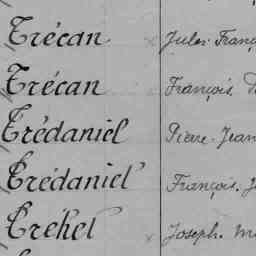 Trécan Jules Franç
Trécan François
Trédaniel Pierre-Jean
Trédaniel François. J
Trehel Joseph. M